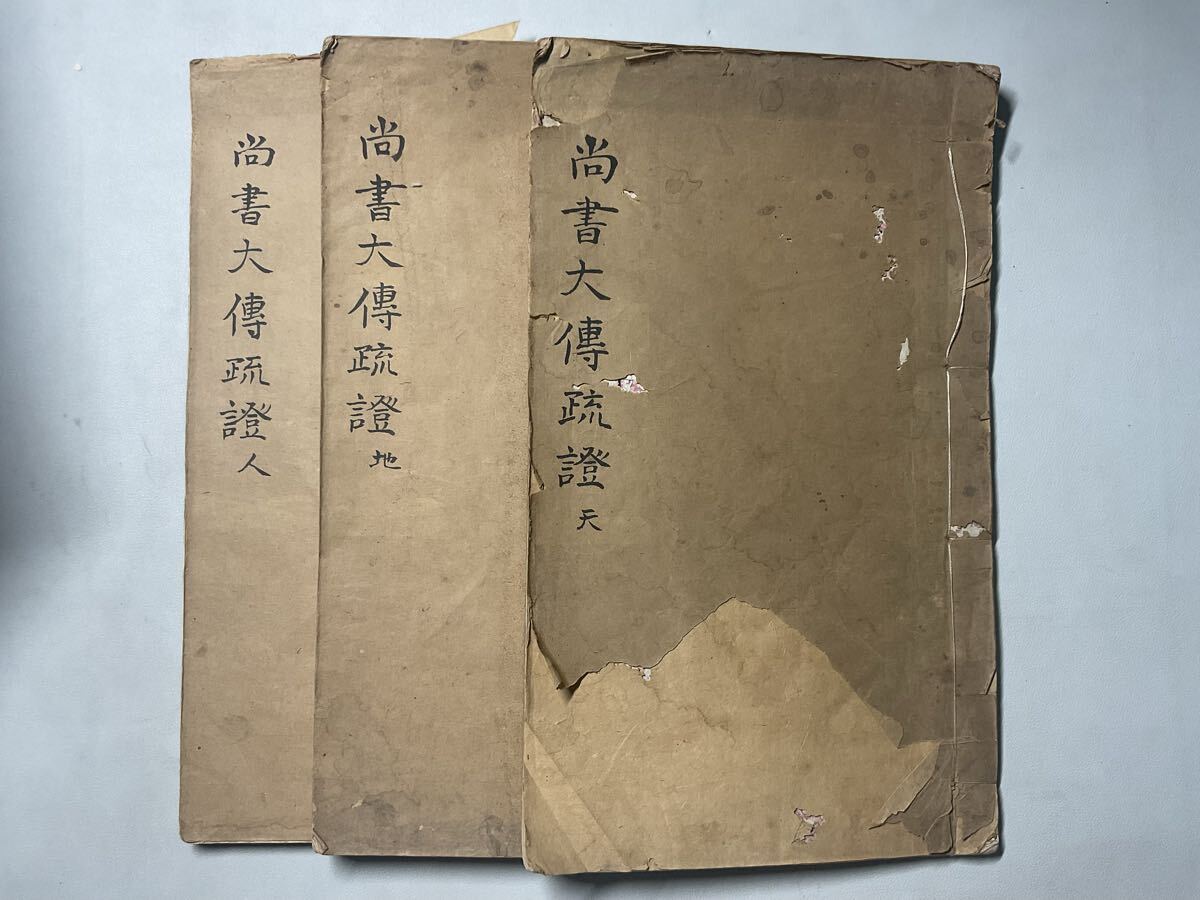 尚書大傳疏證 天
尚書大傳疏證 地
尚書大傳疏證 人